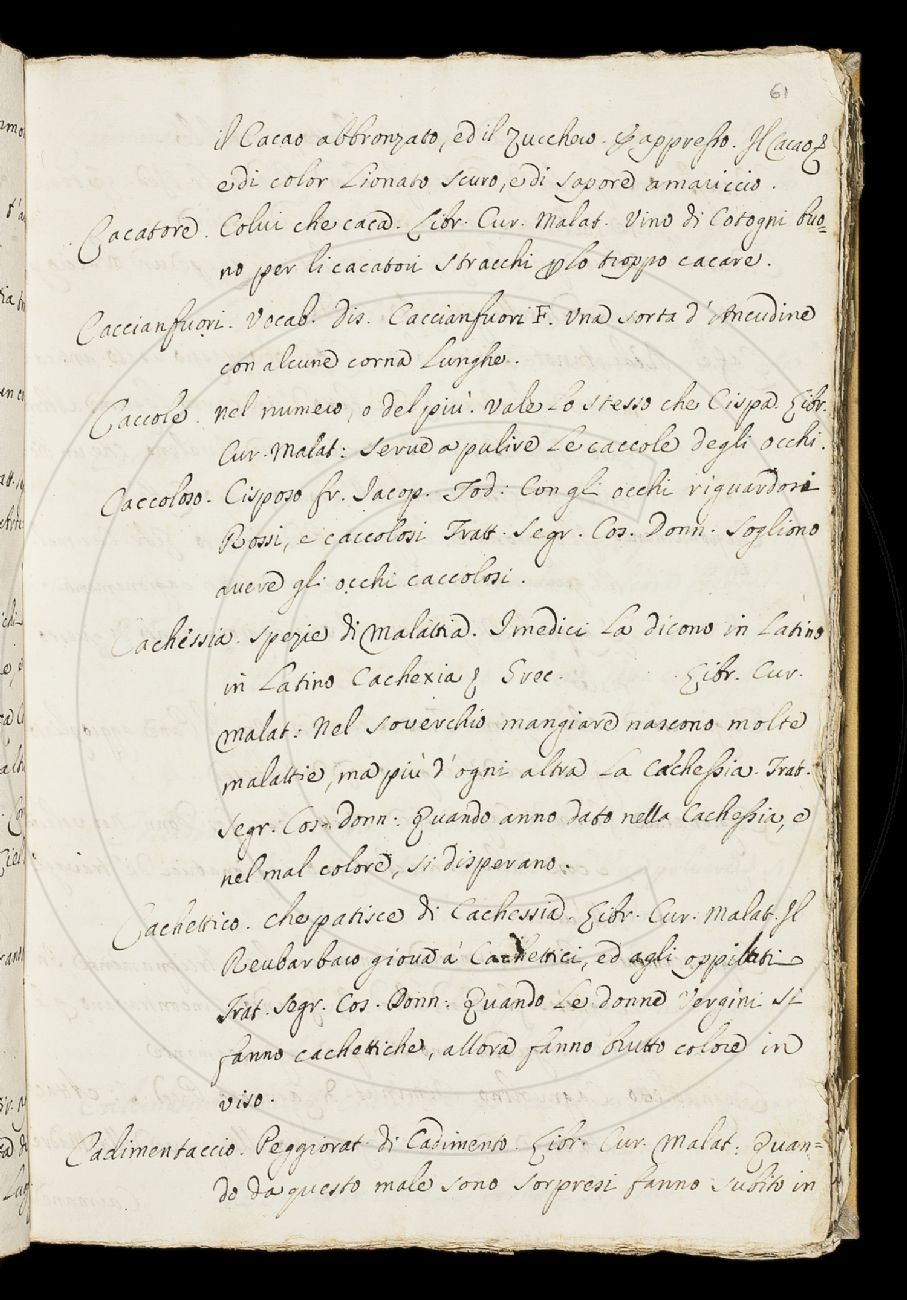 61
il Cacao abbronzato, ed il Zucchero. E appresso. Il Cacao
e di color Lionato scuro, e di sapore amariccio.
Cacatore. Colui che caca. Libr. Cur. Malat. Vino di Cotogni buo=
no per li cacatori stracchi plo troppo cacare.
Caccianfuori. Vocab. dis. Caccianfuori F. Una sorta d'Ancudine
con alcune corna Lunghe.
Caccole. nel numero, o del più. Vale Lo stesso che Cispa. Libr.
Cur. Malat: serve a pulire Le caccole degli occhi.
Caccoloso. Cisposo fr. Jacop. Tod: Con gli occhi riguardosi
Rossi, e caccolosi Tratt. Segr. Cos. Donn. Sogliono
avere gli occhi caccolosi.
Cachessia. spezie di Malattia. I medici La dicono in Latino
in Latino Cachexia Grec. Libr. Cur.
Malat: Nel soverchio mangiare nascono molte
malattie, ma più d'ogni altra La Cachessia. Trat.
Segr. Cos. Donn: Quando anno dato nella Cachessia, e
nel mal colore, si disperano.
Cachettico. che patisce di Cachessia. Libr. Cur. Malat. Il
Reubarbaro giova a' Cachettici, ed agli oppilati
Trat. Segr. Cos. Donn: Quando Le donne Vergini si
fanno cachettiche, allora fanno brutto colore in
viso.
Cadimentaccio. Peggiorat. di Cadimento. Libr. Cur. Malat: Quan=
do da questo male sono sorpresi fanno subito in